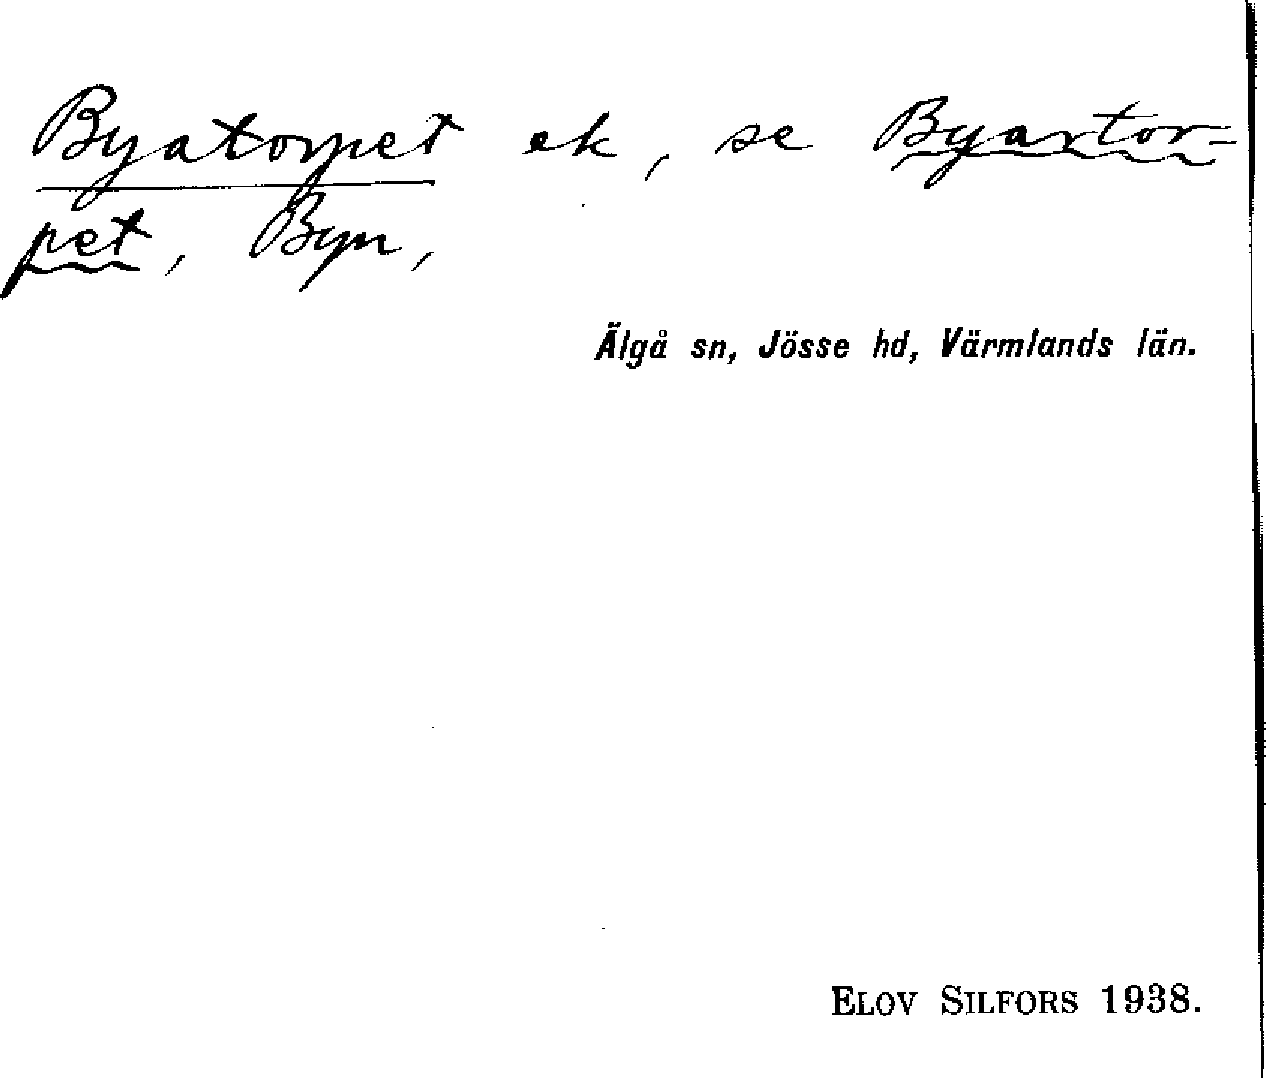 Byatorpet ek, se Byartor-
pet, Byn,
Älgå sn, Jösse hd, Värmlands län.
ELOV SILFORS 1938.